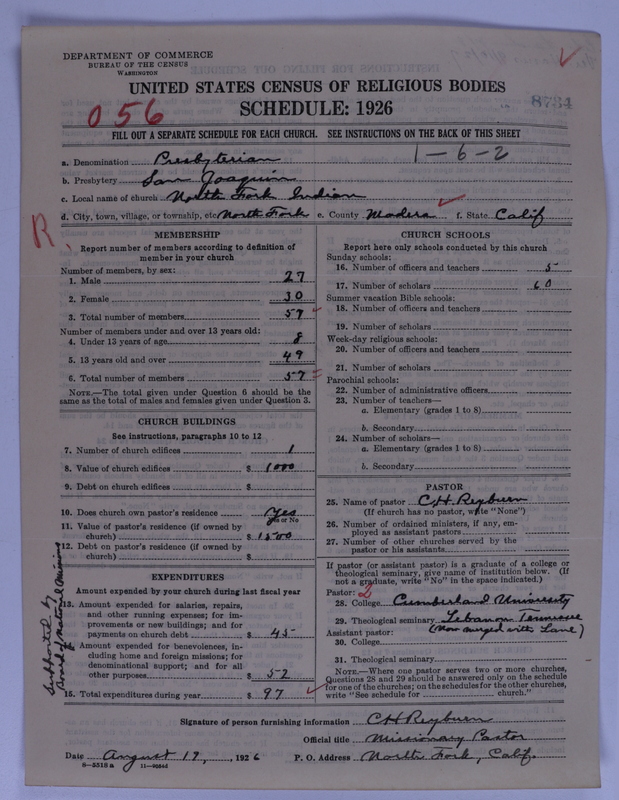 DEPARTMENT OF COMMERCE
BUREAU OF THE CENSUS
WASHINGTON
UNITED STATES CENSUS OF RELIGIOUS BODIES
SCHEDULE: 1926
8734
056
FILL OUT A SEPARATE SCHEDULE FOR EACH CHURCH. SEE INSTRUCTIONS ON THE BACK OF THIS SHEET
1-6-2
a. Denomination Presbyterian
b. Presbytery San Joaquin
c. Local name of church North Fork Indian
d. City, town, village, or township, etc North Fork e. County Madera f. State Calif
R
MEMBERSHIP
Report number of members according to definition of
member in your church
Number of members, by sex:
1. Male 27
2. Female 30
3. Total number of members 57
Number of members under and over 13 years old:
4. Under 13 years of age 8
5. 13 years old and over 49
6. Total number of members 57
NOTE.—The total given under Question 6 should be the
same as the total of males and females given under Question 3.
CHURCH BUILDINGS
See instructions, paragraphs 10 to 12
7. Number of church edifices 1
8. Value of church edifices $ 1000
9. Debt on church edifices $
10. Does church own pastor's residence Yes
Yes or No
11. Value of pastor's residence (if owned by
church) $ 1500
12. Debt on pastor's residence (if owned by
church) $
EXPENDITURES
Amount expended by your church during last fiscal year
13. Amount expended for salaries, repairs,
and other running expenses; for im-
provements or new buildings; and for
payments on church debt $ 45
14. Amount expended for benevolences, in-
cluding home and foreign missions; for
denominational support; and for all
other purposes $ 52
15. Total expenditures during year $ 97
Supported by
Board of National Missions
CHURCH SCHOOLS
Report here only schools conducted by this church
Sunday schools:
16. Number of officers and teachers 5
17. Number of scholars 60
Summer vacation Bible schools:
18. Number of officers and teachers
19. Number of scholars
Week-day religious schools:
20. Number of officers and teachers
21. Number of scholars
Parochial schools:
22. Number of administrative officers
23. Number of teachers—
a. Elementary (grades 1 to 8)
b. Secondary
24. Number of scholars—
a. Elementary (grades 1 to 8)
b. Secondary
PASTOR
25. Name of pastor C H Reyburn
(If church has no pastor, write "None")
26. Number of ordained ministers, if any, em-
ployed as assistant pastors
27. Number of other churches served by the
pastor or his assistants
If pastor (or assistant pastor) is a graduate of a college or
theological seminary, give name of institution below. (If
not a graduate, write "No" in the space indicated.)
Pastor: 2
28. College Cumberland University
29. Theological seminary Lebanon Tennessee
Assistant pastor: (Now merged with Lane)
30. College
31. Theological seminary
NOTE.—Where one pastor serves two or more churches,
Questions 28 and 29 should be answered only on the schedule
for one of the churches; on the schedules for the other churches,
write "See schedule for church."
Signature of person furnishing information C H Reyburn
Official title Missionary Pastor
Date August 17, 1926 P. O. Address North Fork, Calif.
8-5518a